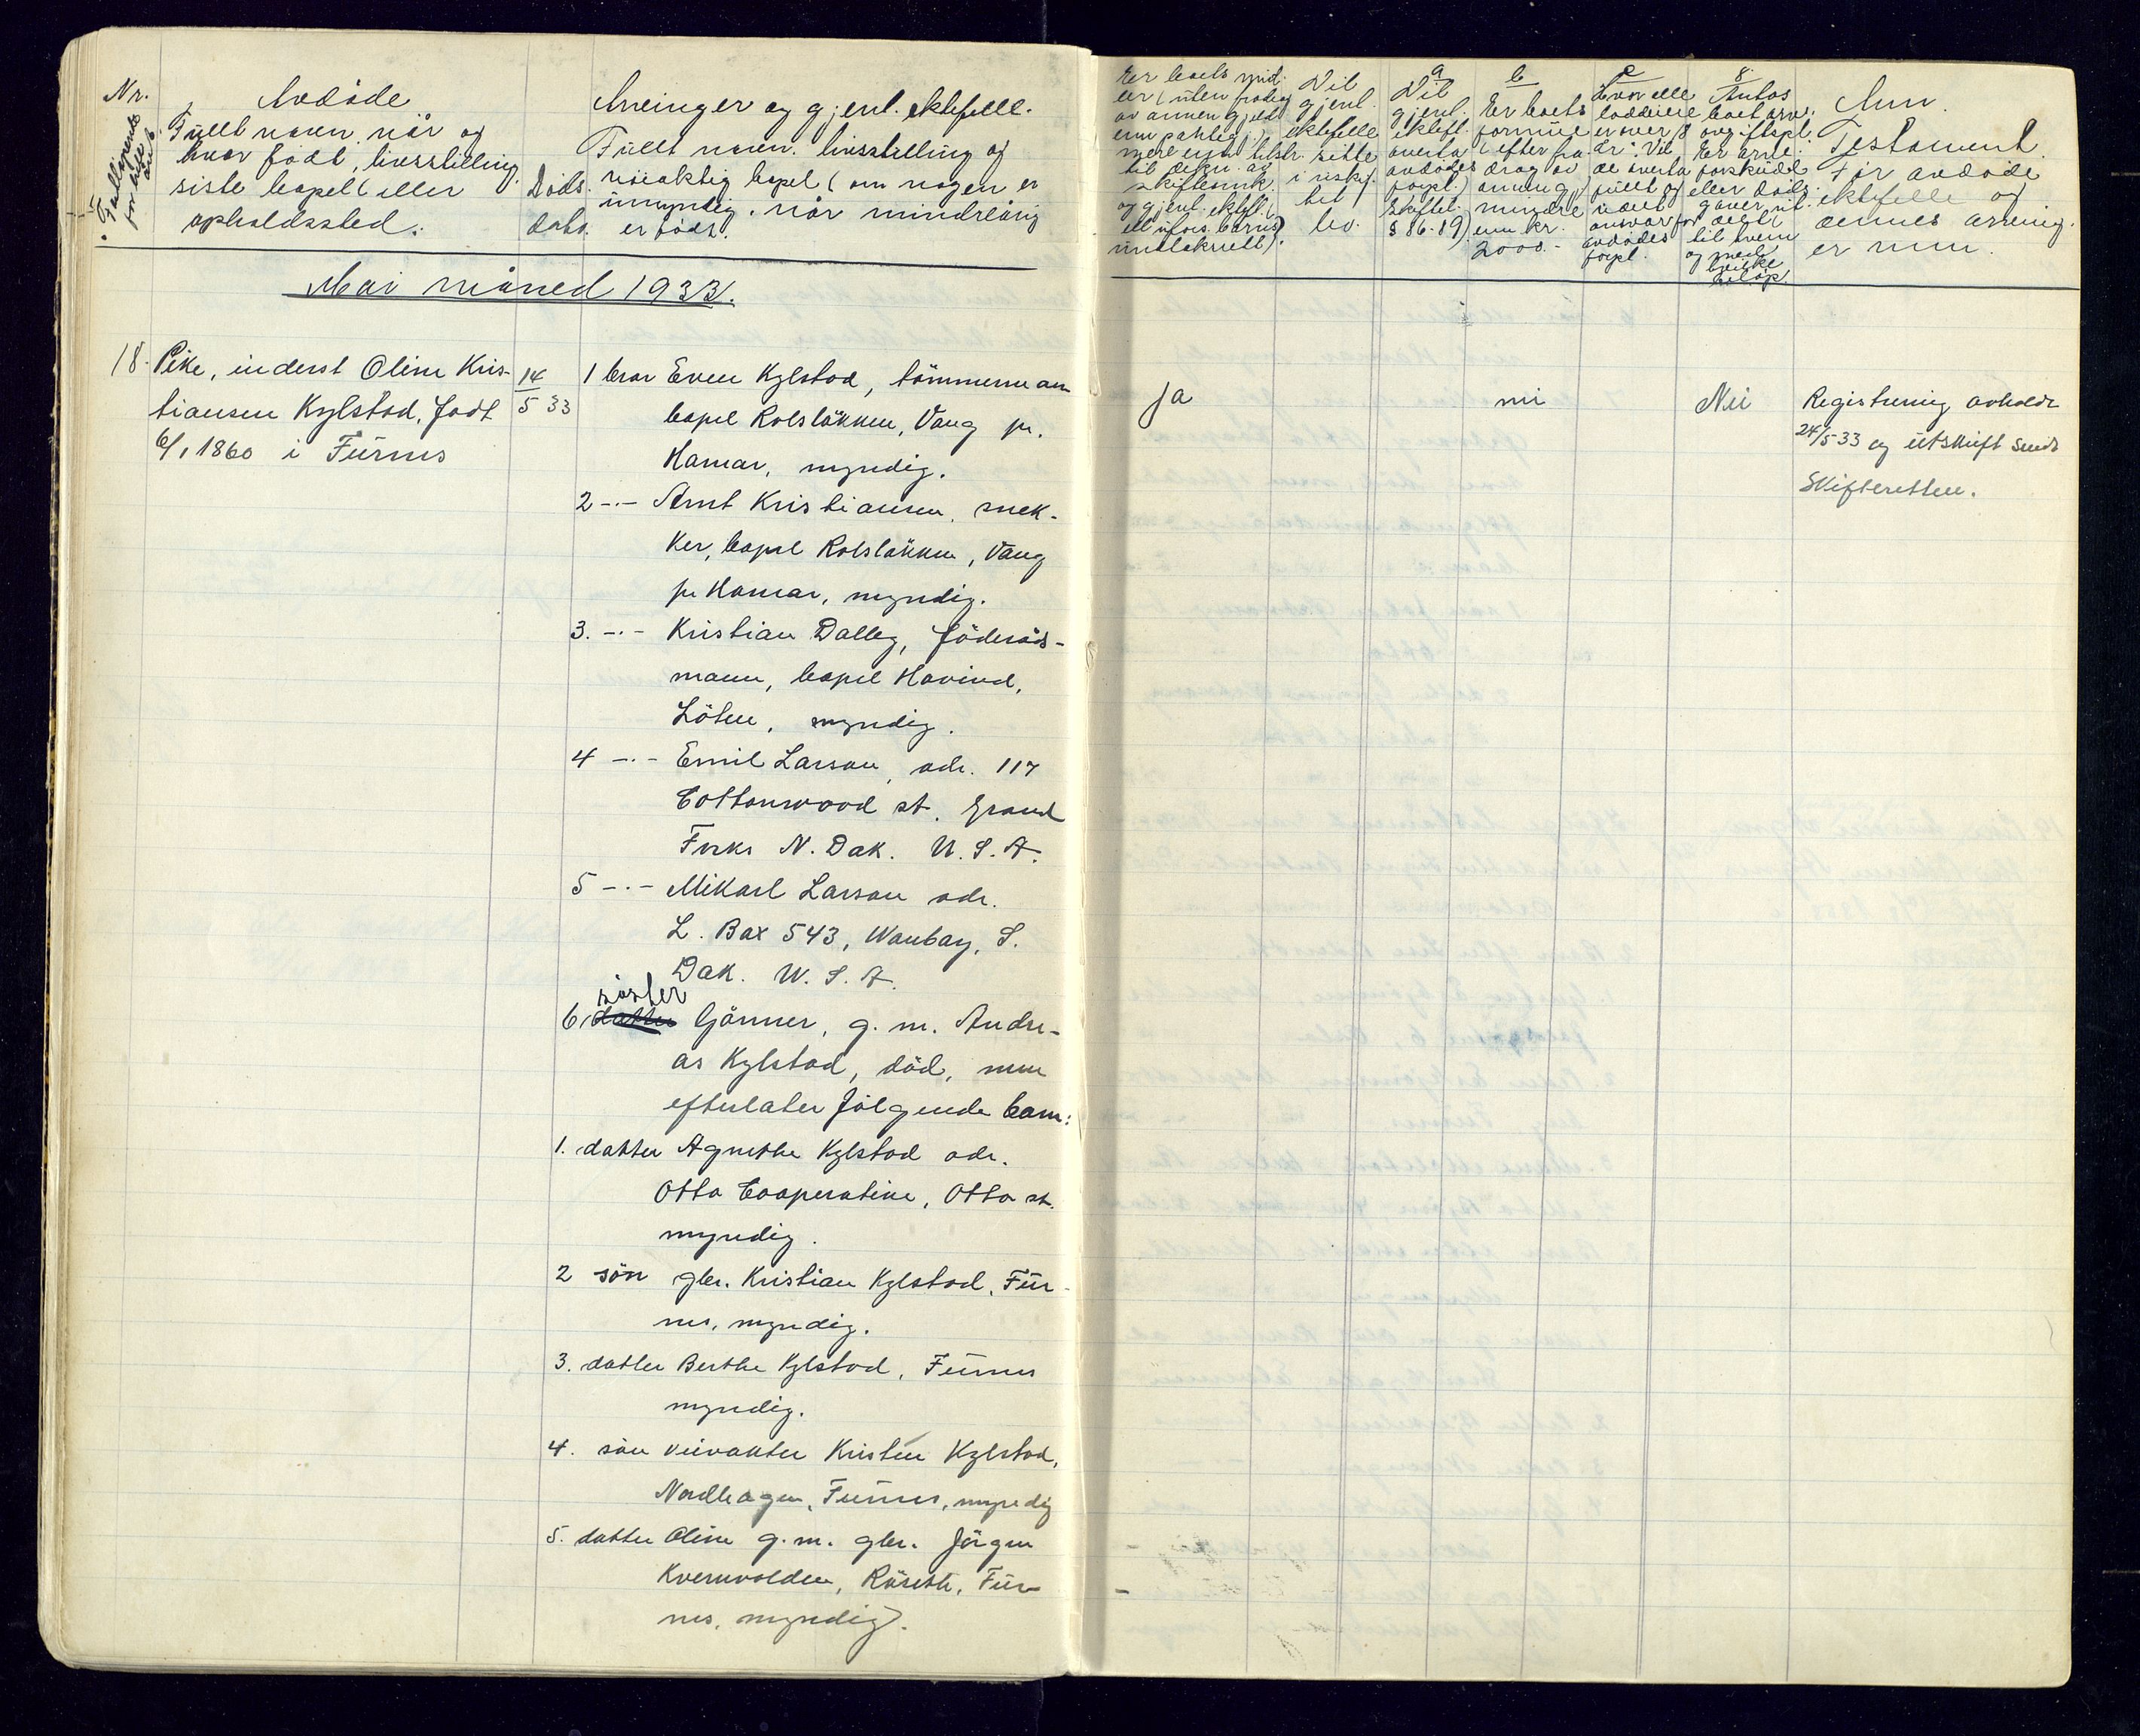 Nr.
Fortløpende
for hele
året.
Avdøde
Fullt navn, når og
hvor født, livsstilling,
siste bopel (eller
opholdssted.
Døds-
dato.
Arvinger og gjenl. ektefelle.
Fullt navn, livsstilling og
nöiaktig bopel (om nogen er
umyndig, når mindreårig
er född.
Er boets mid-
ler (uten fradrag
av annen gjeld
enn pantegj.)
mere enn tilstr.
til dekn. av
skifteomk.
og gjenl. ektef.
Vil
gjenl.
ektefelle
sitte
i uskif-
tet
bo.
a
Vil
gjenl.
ektef.
overta
avdødes
forpl.
Skiftel.
§ 86-89).
b
Er boets
formue
(efter fra-
drag av
mindre
enn kr.
2000.-
c
Hvor alle
loddeiere
er over 18
år: Vil
de overta
fullt og
udelt
ansvar for
avdødes
forpl.
8.
Antas
boet arv-
avgiftspl.
Er arve-
forskudd
eller døds-
gaver,
til hvem
og med
hvilke
beløp.
Anm.
Testament.
For avdøde
ektefelle og
dennes arving-
er mm.
Mai måned 1933.
18. Pike, inderst Oline Kris-
tiansen Kylstad, født
6/1 1860 i Furnes
14
5 33
1 bror Even Kylstad, tömmermann
bopel Rolslökken, Vang pr.
Hamar, myndig.
2 -.- Arnt Kristiansen, snek-
ker, bopel Rolslökken, Vang
pr Hamar, myndig.
3. -.- Kristian Dalby, föderåds-
mann, bopel Hovind,
Löten, myndig.
4 -.- Emil Larson, adr. 117
Cottonwood st. Grand
Forks N. Dak. U. S. A.
5 -.- Mikael Larson adr.
L. Box 543, Waubay, S.
Dak. U. S. A.
söster
6, datter Gönner, g. m. Andre-
as Kylstad, död, men
efterlater følgende barn:
1. datter Agnethe Kylstad adr.
Otta Cooperative, Otta st.
myndig.
2 sön gbr. Kristian Kylstad, Fur-
nes, myndig.
3. datter Berthe Kylstad, Furnes
myndig.
4. sön veivokter Kristen Kylstad,
Nordhagen, Furnes, myndig
5. datter Oline g. m. gbr. Jörgen
Kvernvolden, Röseth, Fur-
nes, myndig.
ja
nei
Nei
Registrering avholdt
24/5 33 og utskrift sendt
Skifteretten.